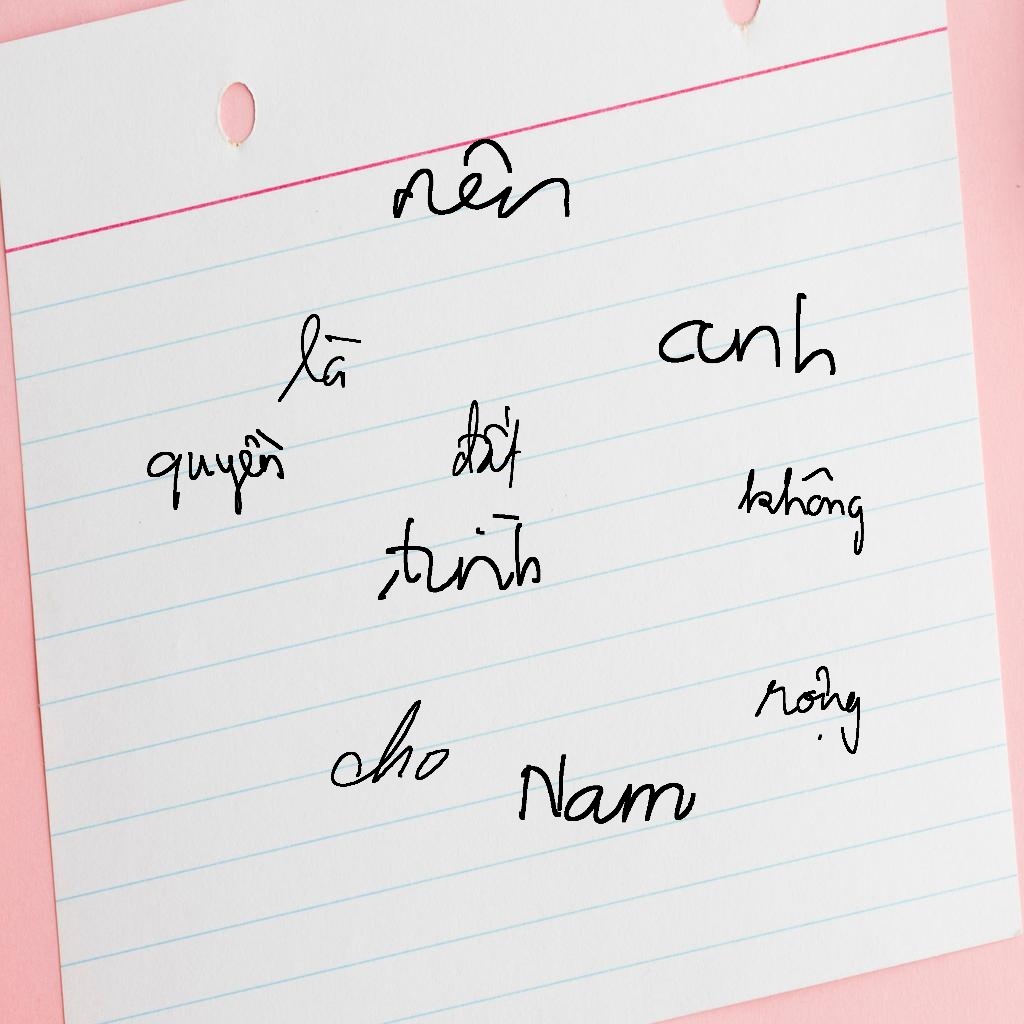 nên
là anh
quyền đất không
tình
rộng
cho Nam